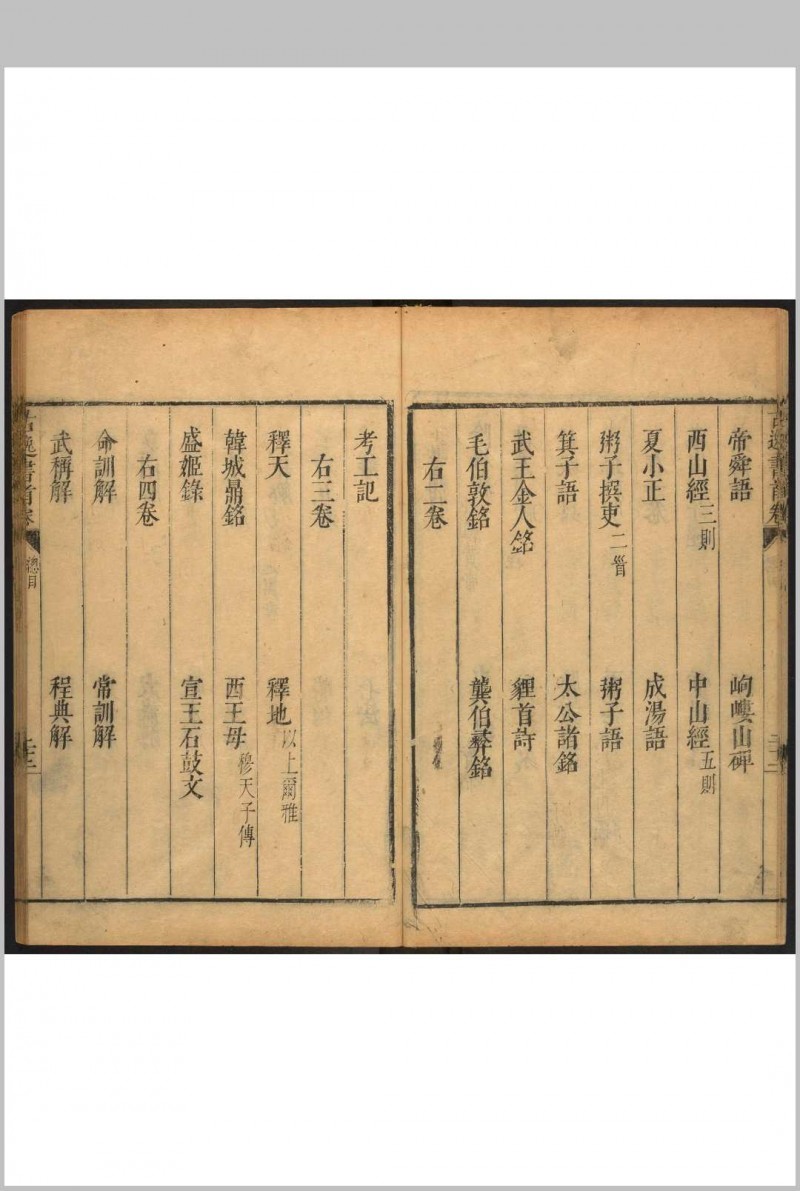 帝舜語 岣嶁山碑
西山經三則 中山經五則
夏小正 成湯語
粥子撰吏二首 粥子語
箕子語 太公諸銘
武王金人銘 貍首詩
毛伯敦銘 龔伯彝銘
右二卷
考工記
右三卷
釋天 釋地以上爾雅
韓城鼎銘 西王母穆天子傳
盛姬錄 宣王石鼓文
右四卷
命訓解 常訓解
武稱解 程典解
古逸書首卷 總目